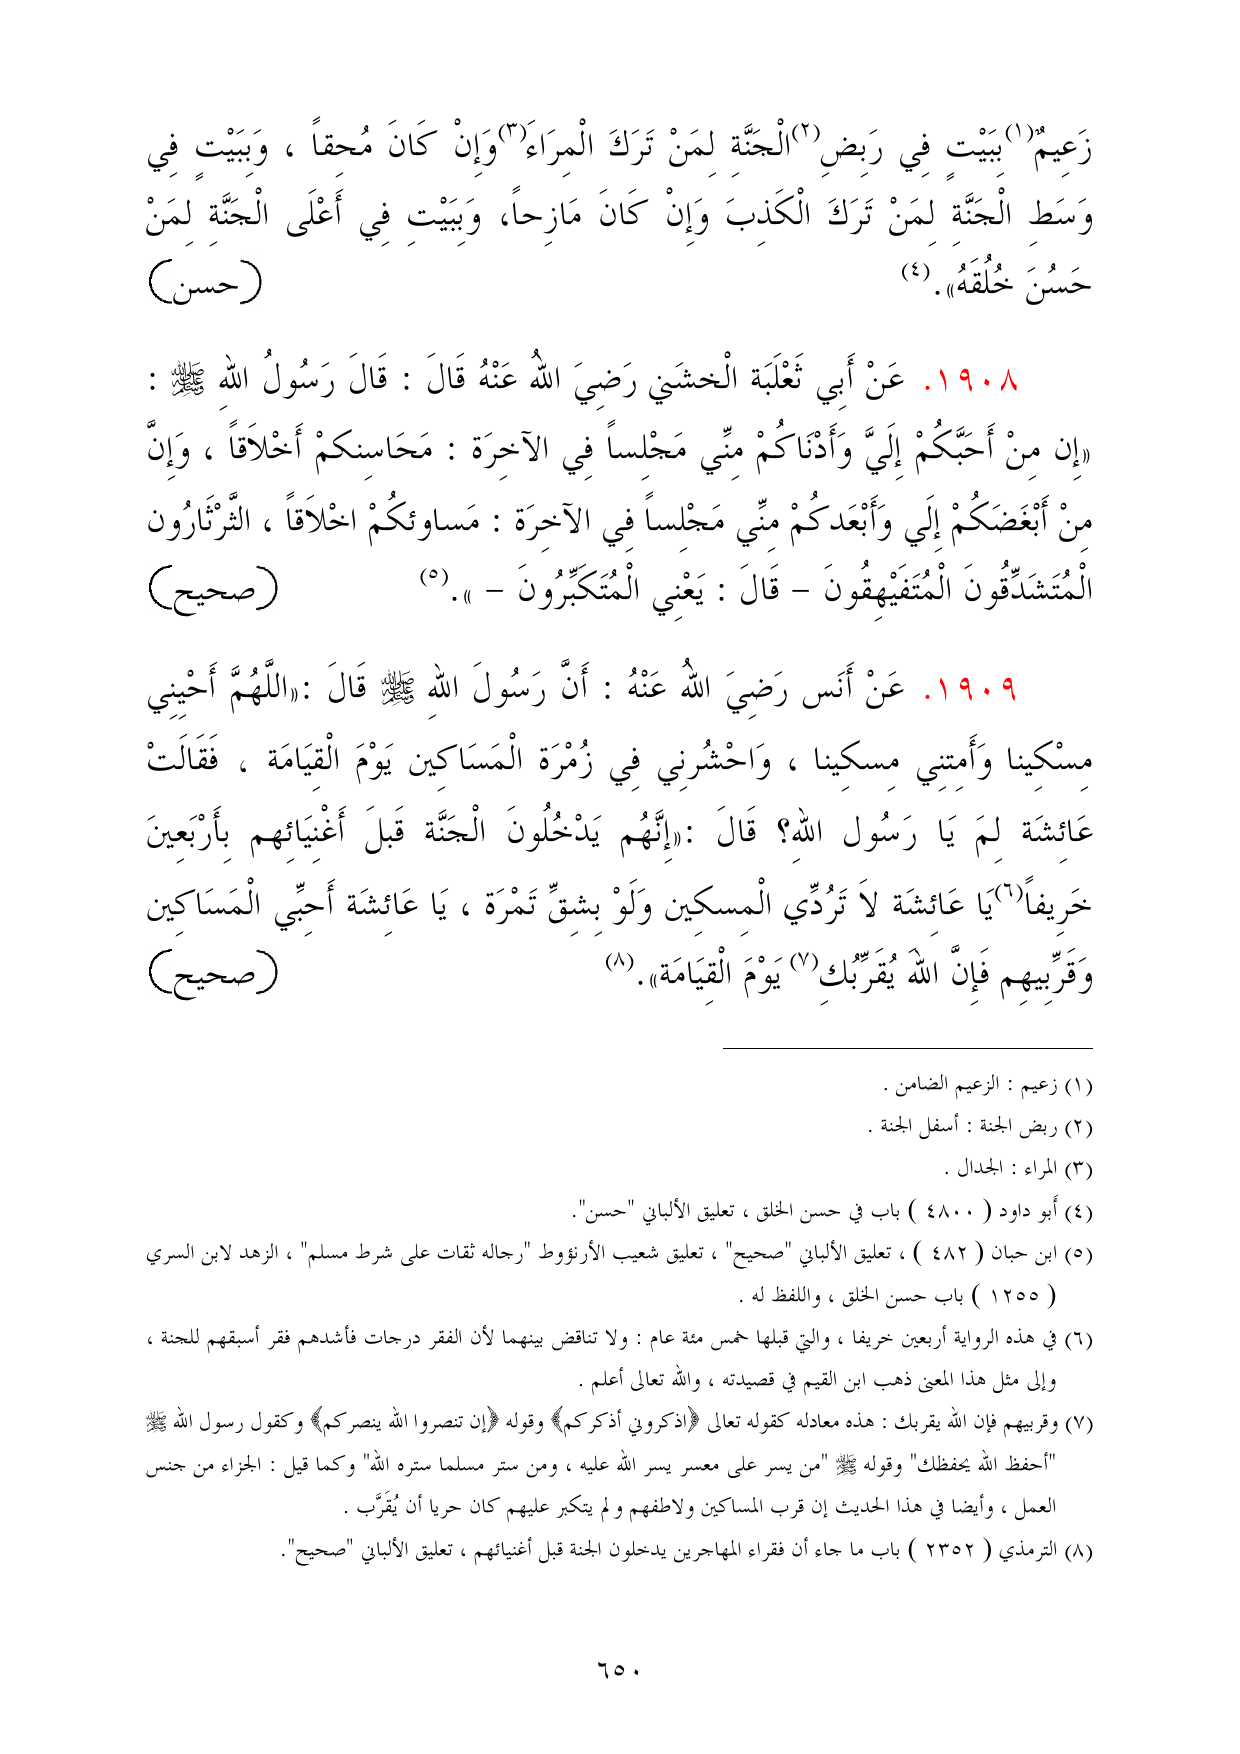 زَعِيمٌ(١)بِبَيْتٍ فِي رَبِضِ(٢)الْجَنَّةِ لِمَنْ تَرَكَ الْمِرَاءَ(٣)وَإِنْ كَانَ مُحِقاً ، وَبِبَيْتٍ فِي
وَسَطِ الْجَنَّةِ لِمَنْ تَرَكَ الْكَذِبَ وَإِنْ كَانَ مَازِحاً، وَبِبَيْتِ فِي أَعْلَى الْجَنَّةِ لِمَنْ
حَسُنَ خُلُقَهُ». (٤) (حسن)
١٩٠٨. عَنْ أَبِي ثَعْلَبَة الْخشَنِي رَضِيَ اللهُ عَنْهُ قَالَ : قَالَ رَسُولُ اللهِ ﷺ :
«إِن مِنْ أَحَبَّكُمْ إِلَيَّ وَأَدْنَاكُمْ مِنِّي مَجْلِساً فِي الآخِرَة : مَحَاسِنكمْ أَخْلاَقاً ، وَإِنَّ
مِنْ أَبْغَضَكُمْ إِلَي وَأَبْعَدكُمْ مِنِّي مَجْلِساً فِي الآخِرَة : مَساوئكُمْ اخْلاَقاً ، الثَّرْثَارُون
الْمُتَشَدِّقُونَ الْمُتَفَيْهِقُونَ – قَالَ : يَعْنِي الْمُتَكَبِّرُونَ – ». (٥) (صحيح)
١٩٠٩. عَنْ أَنَس رَضِيَ اللهُ عَنْهُ : أَنَّ رَسُولَ اللهِ ﷺ قَالَ :«اللَّهُمَّ أَحْيِنِي
مِسْكِينا وَأَمِتنِي مِسكِينا ، وَاحْشُرنِي فِي زُمْرَة الْمَسَاكِين يَوْمَ الْقِيَامَة ، فَقَالَتْ
عَائِشَة لِمَ يَا رَسُول اللهِ؟ قَالَ :«إِنَّهُم يَدْخُلُونَ الْجَنَّة قَبلَ أَغْنِيَائِهم بِأَرْبَعِينَ
خَرِيفاً(٦)يَا عَائِشَة لاَ تَرُدِّي الْمِسكِين وَلَوْ بِشِقِّ تَمْرَة ، يَا عَائِشَة أَحِبِّي الْمَسَاكِين
وَقَرِّبِيهِم فَإِنَّ اللهَ يُقَرِّبُكِ(٧) يَوْمَ الْقِيَامَة». (٨) (صحيح)
(١) زعيم : الزعيم الضامن .
(٢) ربض الجنة : أسفل الجنة .
(٣) المراء : الجدال .
(٤) أبو داود ( ٤٨٠٠ ) باب في حسن الخلق ، تعليق الألباني "حسن".
(٥) ابن حبان ( ٤٨٢ ) ، تعليق الألباني "صحيح" ، تعليق شعيب الأرنؤوط "رجاله ثقات على شرط مسلم" ، الزهد لابن السري
( ١٢٥٥ ) باب حسن الخلق ، واللفظ له .
(٦) في هذه الرواية أربعين خريفا ، والتي قبلها خمس مئة عام : ولا تناقض بينهما لأن الفقر درجات فأشدهم فقر أسبقهم للجنة ،
وإلى مثل هذا المعنى ذهب ابن القيم في قصيدته ، والله تعالى أعلم .
(٧) وقربيهم فإن الله يقربك : هذه معادله كقوله تعالى ﴿اذكروني أذكركم﴾ وقوله ﴿إن تنصروا الله ينصركم﴾ وكقول رسول الله ﷺ
"أحفظ الله يحفظك" وقوله ﷺ "من يسر على معسر يسر الله عليه ، ومن ستر مسلما ستره الله" وكما قيل : الجزاء من جنس
العمل ، وأيضا في هذا الحديث إن قرب المساكين ولاطفهم و لم يتكبر عليهم كان حريا أن يُقَرَّب .
(٨) الترمذي ( ٢٣٥٢ ) باب ما جاء أن فقراء المهاجرين يدخلون الجنة قبل أغنيائهم ، تعليق الألباني "صحيح".
٦٥٠